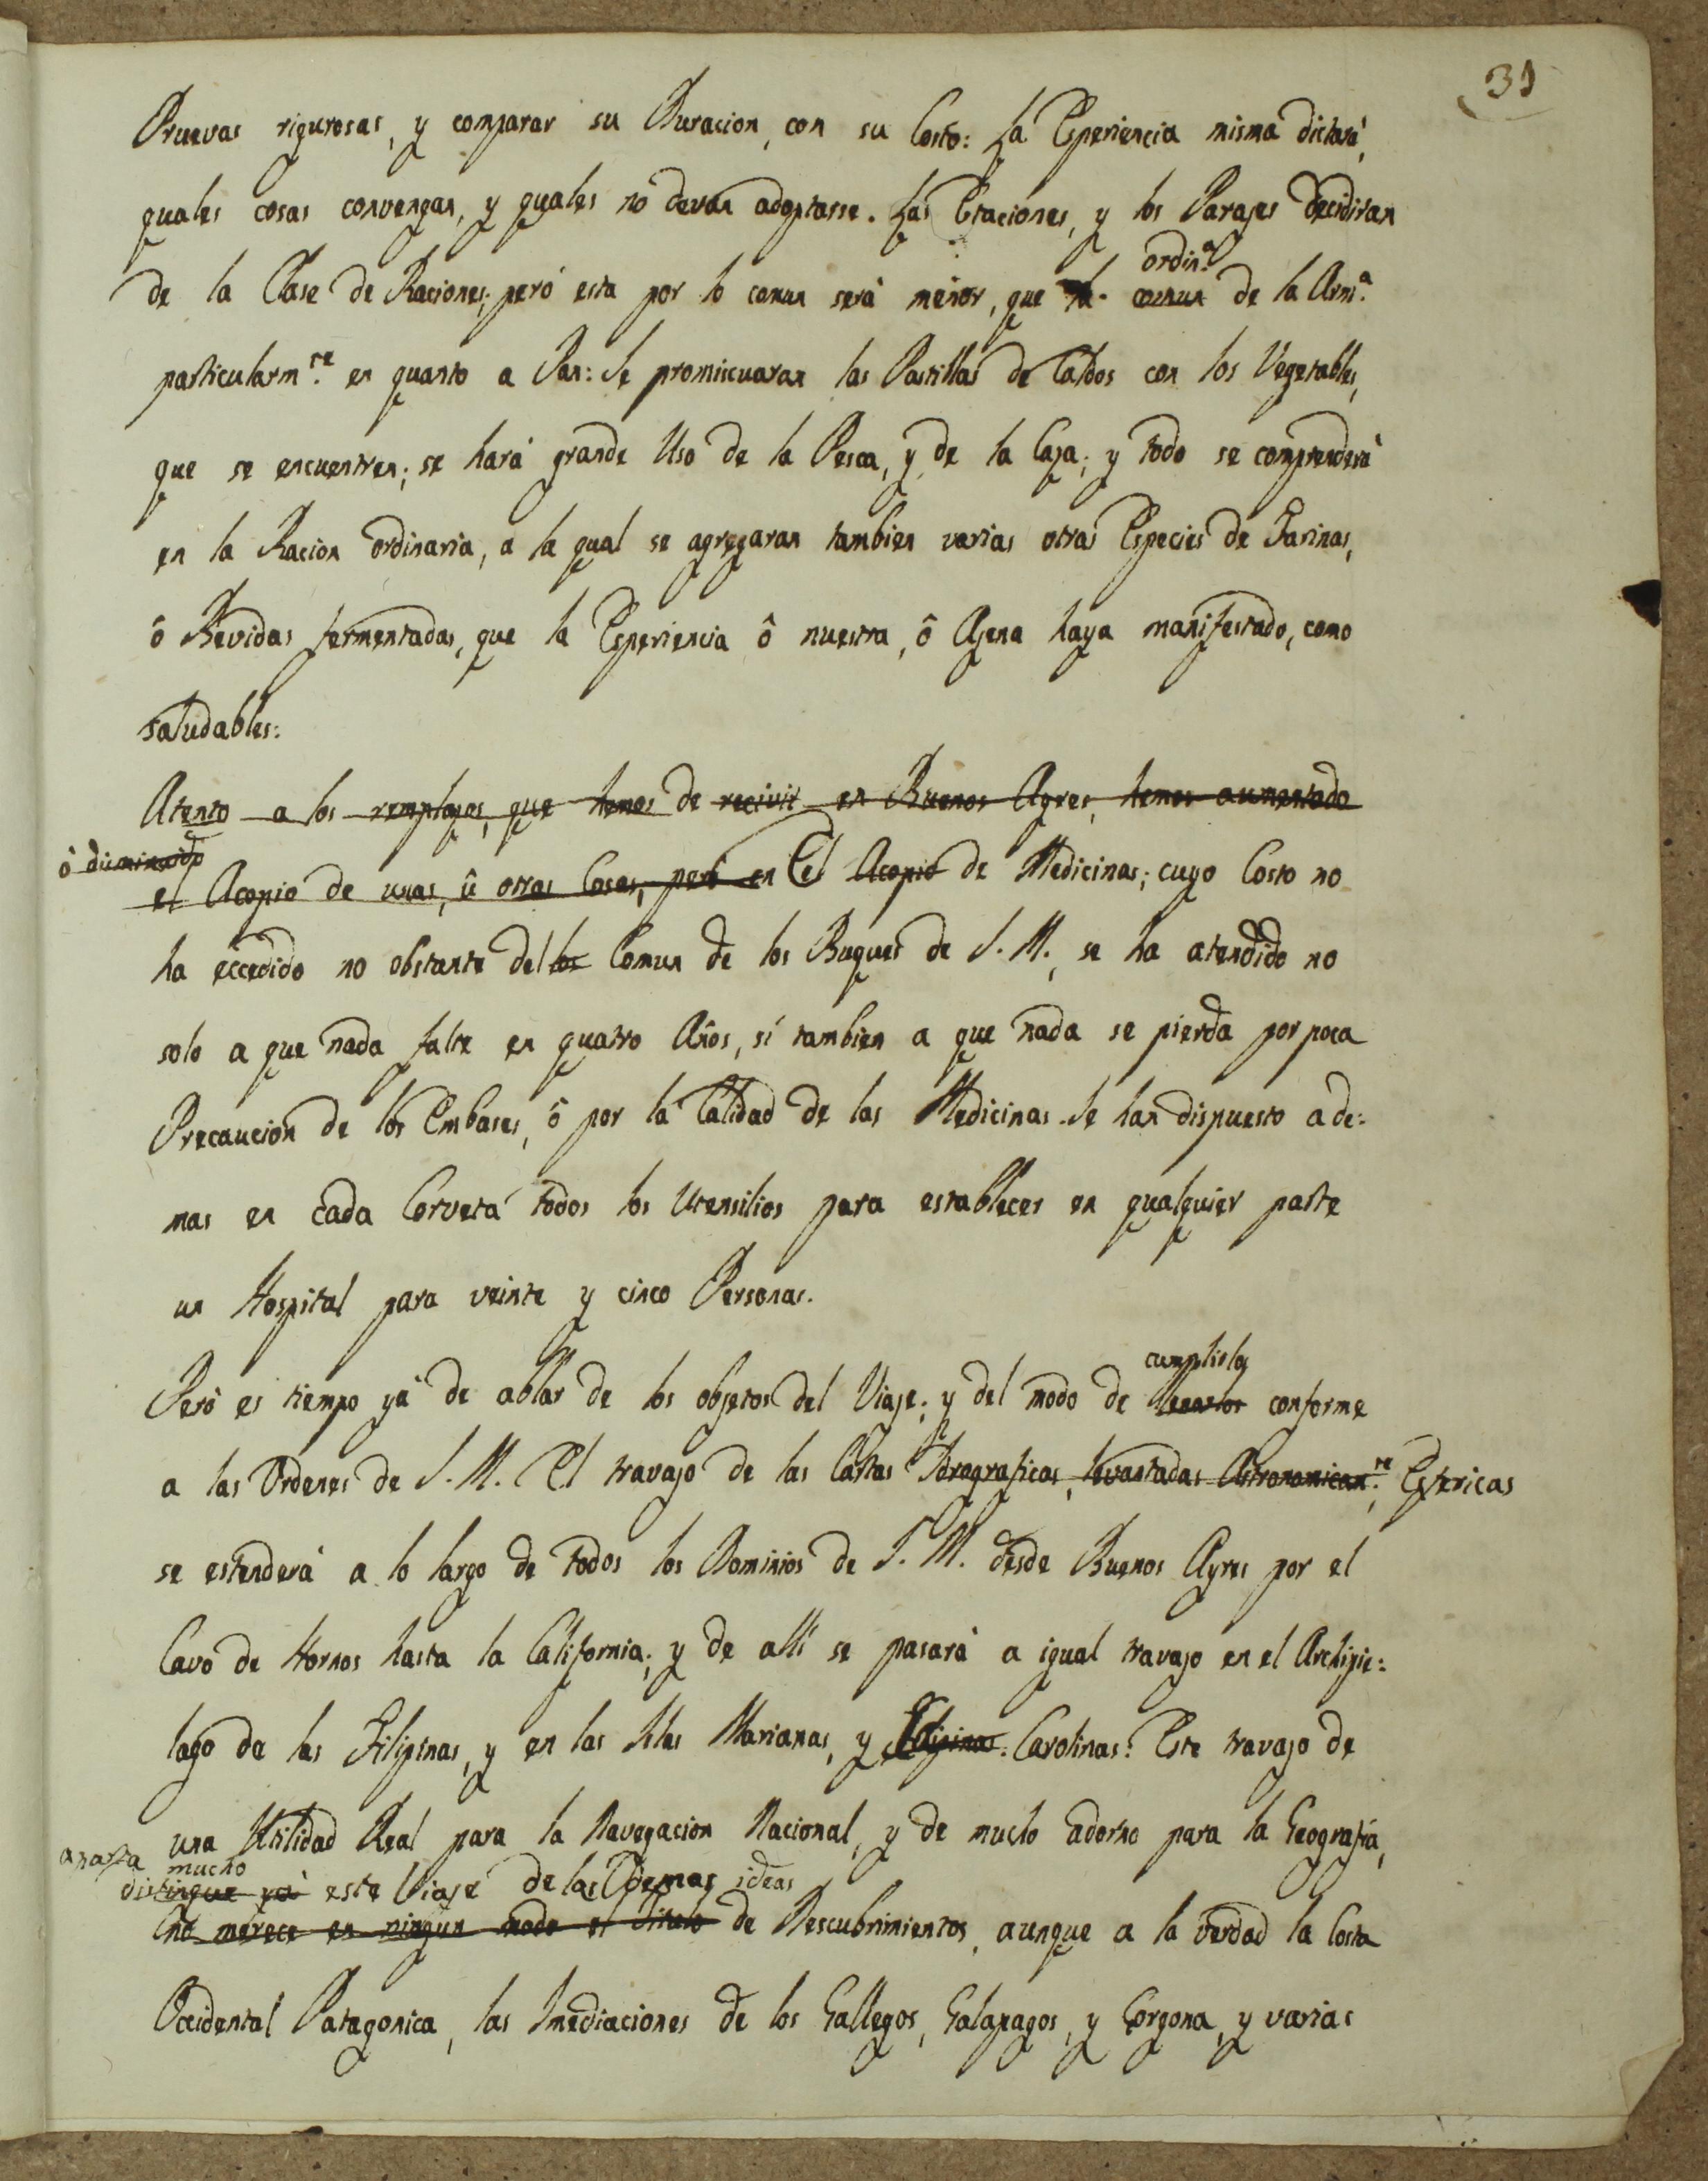 31
Pruevas rigurosas, y comparar su Duracion, con su Costo: La Esperiencia misma dictará,
quales cosas convengan, y quales nó devan adoptarse. Las Estaciones, y los Parajes decidiran
ordin.ª
de la Clase de Raciones; peró esta por lo comun será menor, que la comun de la Arm.ª
particularm.te en quanto a Pan: Se promiscuaran las Pastillas de Caldos con los Vegetables,
que se encuentren; se hará grande Uso de la Pesca, y de la Caza; y todo se comprenderá
en la Racion ordinaria, a la qual se agregaran tambien varias otras Especies de Farinas,
ô Bevidas fermentadas, que la Esperiencia ô nuestra, ô Ajena haya manifestado, como
saludables:
Atento a los remplazos, que hemos de recivir en Buenos Ayres, hemos aumentado
ô disminuido
el Acopio de unas, û otras Cosas, peró en El Acopio de Medicinas; cuyo Costo no
ha eccedido no obstante del los Comun de los Buques de S. M., se ha atendido no
solo a que nada falte en quatro Años, sí tambien a que nada se pierda por poca
Precaucion de los Embases, ô por la Calidad de las Medicinas. Se han dispuesto ade:
mas en cada Corveta todos los Utensilios para establecer en qualquier parte
un Hospital para veinte y cinco Personas.
cumplirlos
Peró es tiempo yá de ablar de los objetos del Viaje; y del modo de llenarlos conforme
a las Ordenes de S. M. El travajo de las Cartas Idrograficas, levantadas Astronomicam.te; Esfericas
se estenderá a lo largo de todos los Dominios de S. M. desde Buenos Ayres por el
Cavo de Hornos hasta la California; y de allí se pasará a igual travajo en el Archipie:
lago de las Filipinas, y en las Islas Marianas, y Filipinas: Carolinas: Este travajo de
una Utilidad Real para la Navegacion Nacional, y de mucho adorno para la Geografía,
aparta mucho
distingue yá este Viaje de las Demas ideas
no merece en ningun modo el Titulo de Descubrimientos, aunque a la verdad la Costa
Occidental Patagonica, las Imediaciones de los Gallegos, Galapagos, y Gorgona, y varias